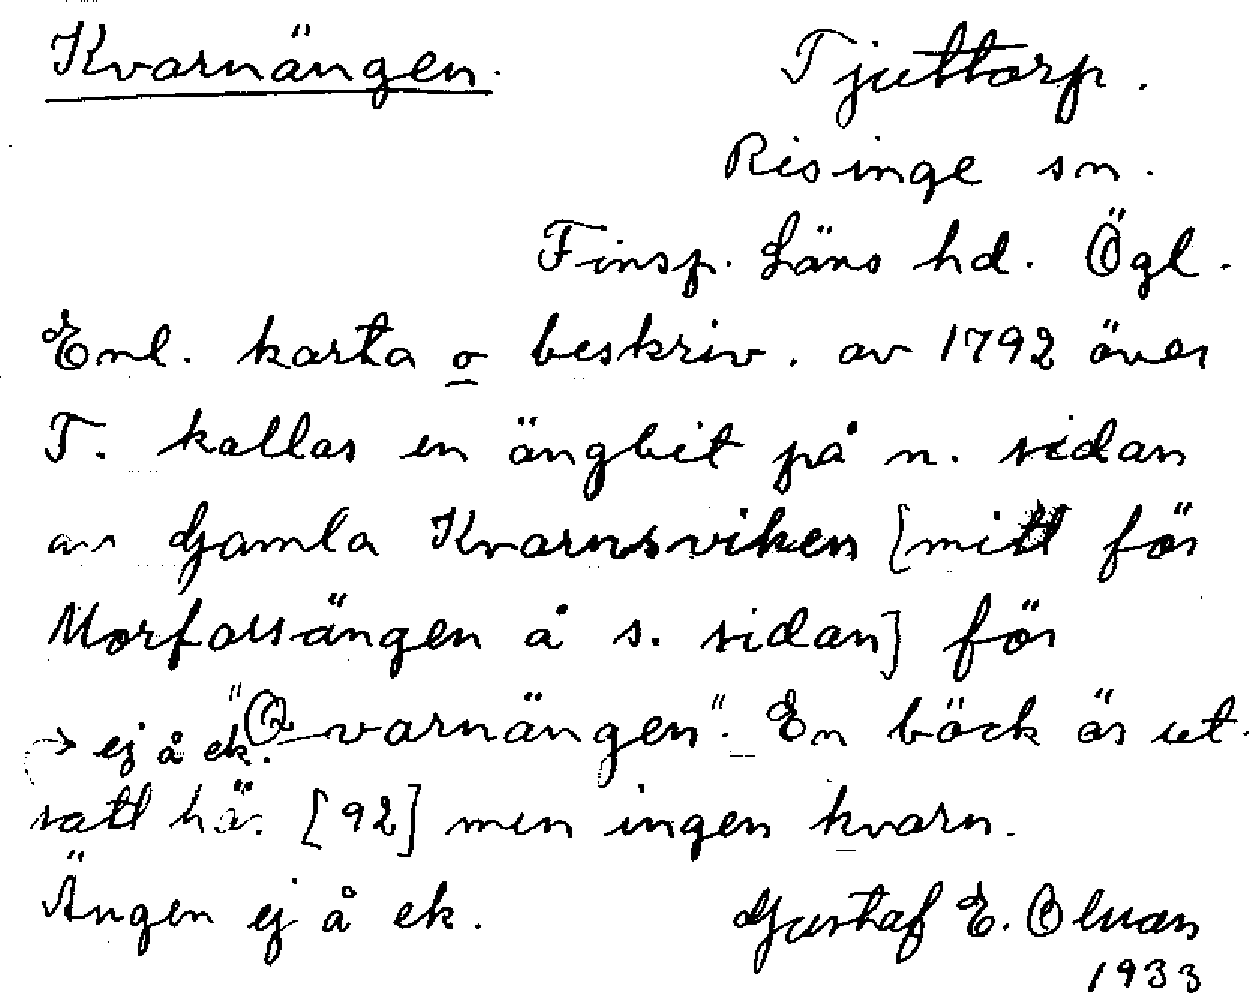 Kvarnängen. Tjuttorp.
Risinge sn.
Finsp. Läns hd. Ögl.
Enl. karta o beskriv. av 1792 över
T. kallas en ängbit på n. sidan
av Gamla Kvarnsviken [mitt för
Morfarsängen å s. sidan] för
"Qvarnängen". En bäck är ut-
→ ej å ek.
satt här [92] men ingen kvarn.
Ängen ej å ek. Gustaf E. Olson
1933